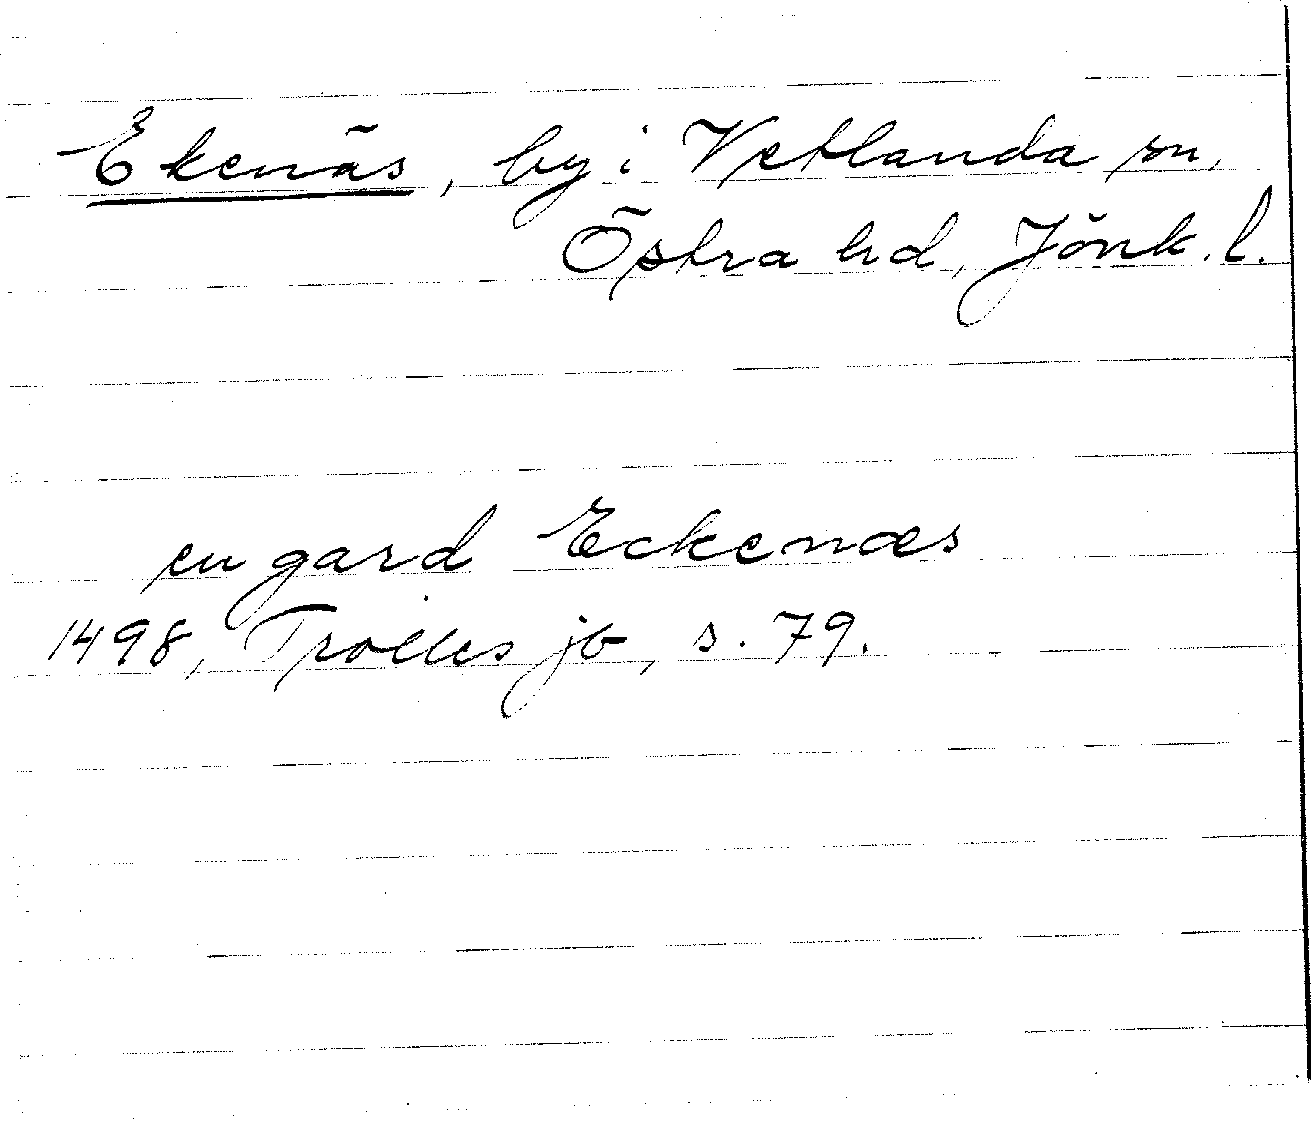 Ekenäs, by i Vetlanda sn,
Östra hd, Jönk. l.
en gard Eckenæs
1498, Trolles jb, s. 79.